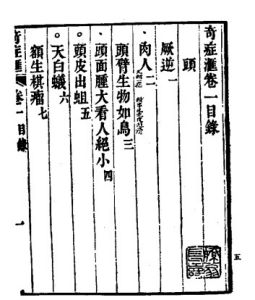 奇症滙卷一目錄
頭
厥逆一
肉人二
頭臂生物如鳥三
頭面腫大看人絕小四
頭皮出蛆五
天白蟻六
額生棋瘤七
奇症滙卷一目錄 一
五